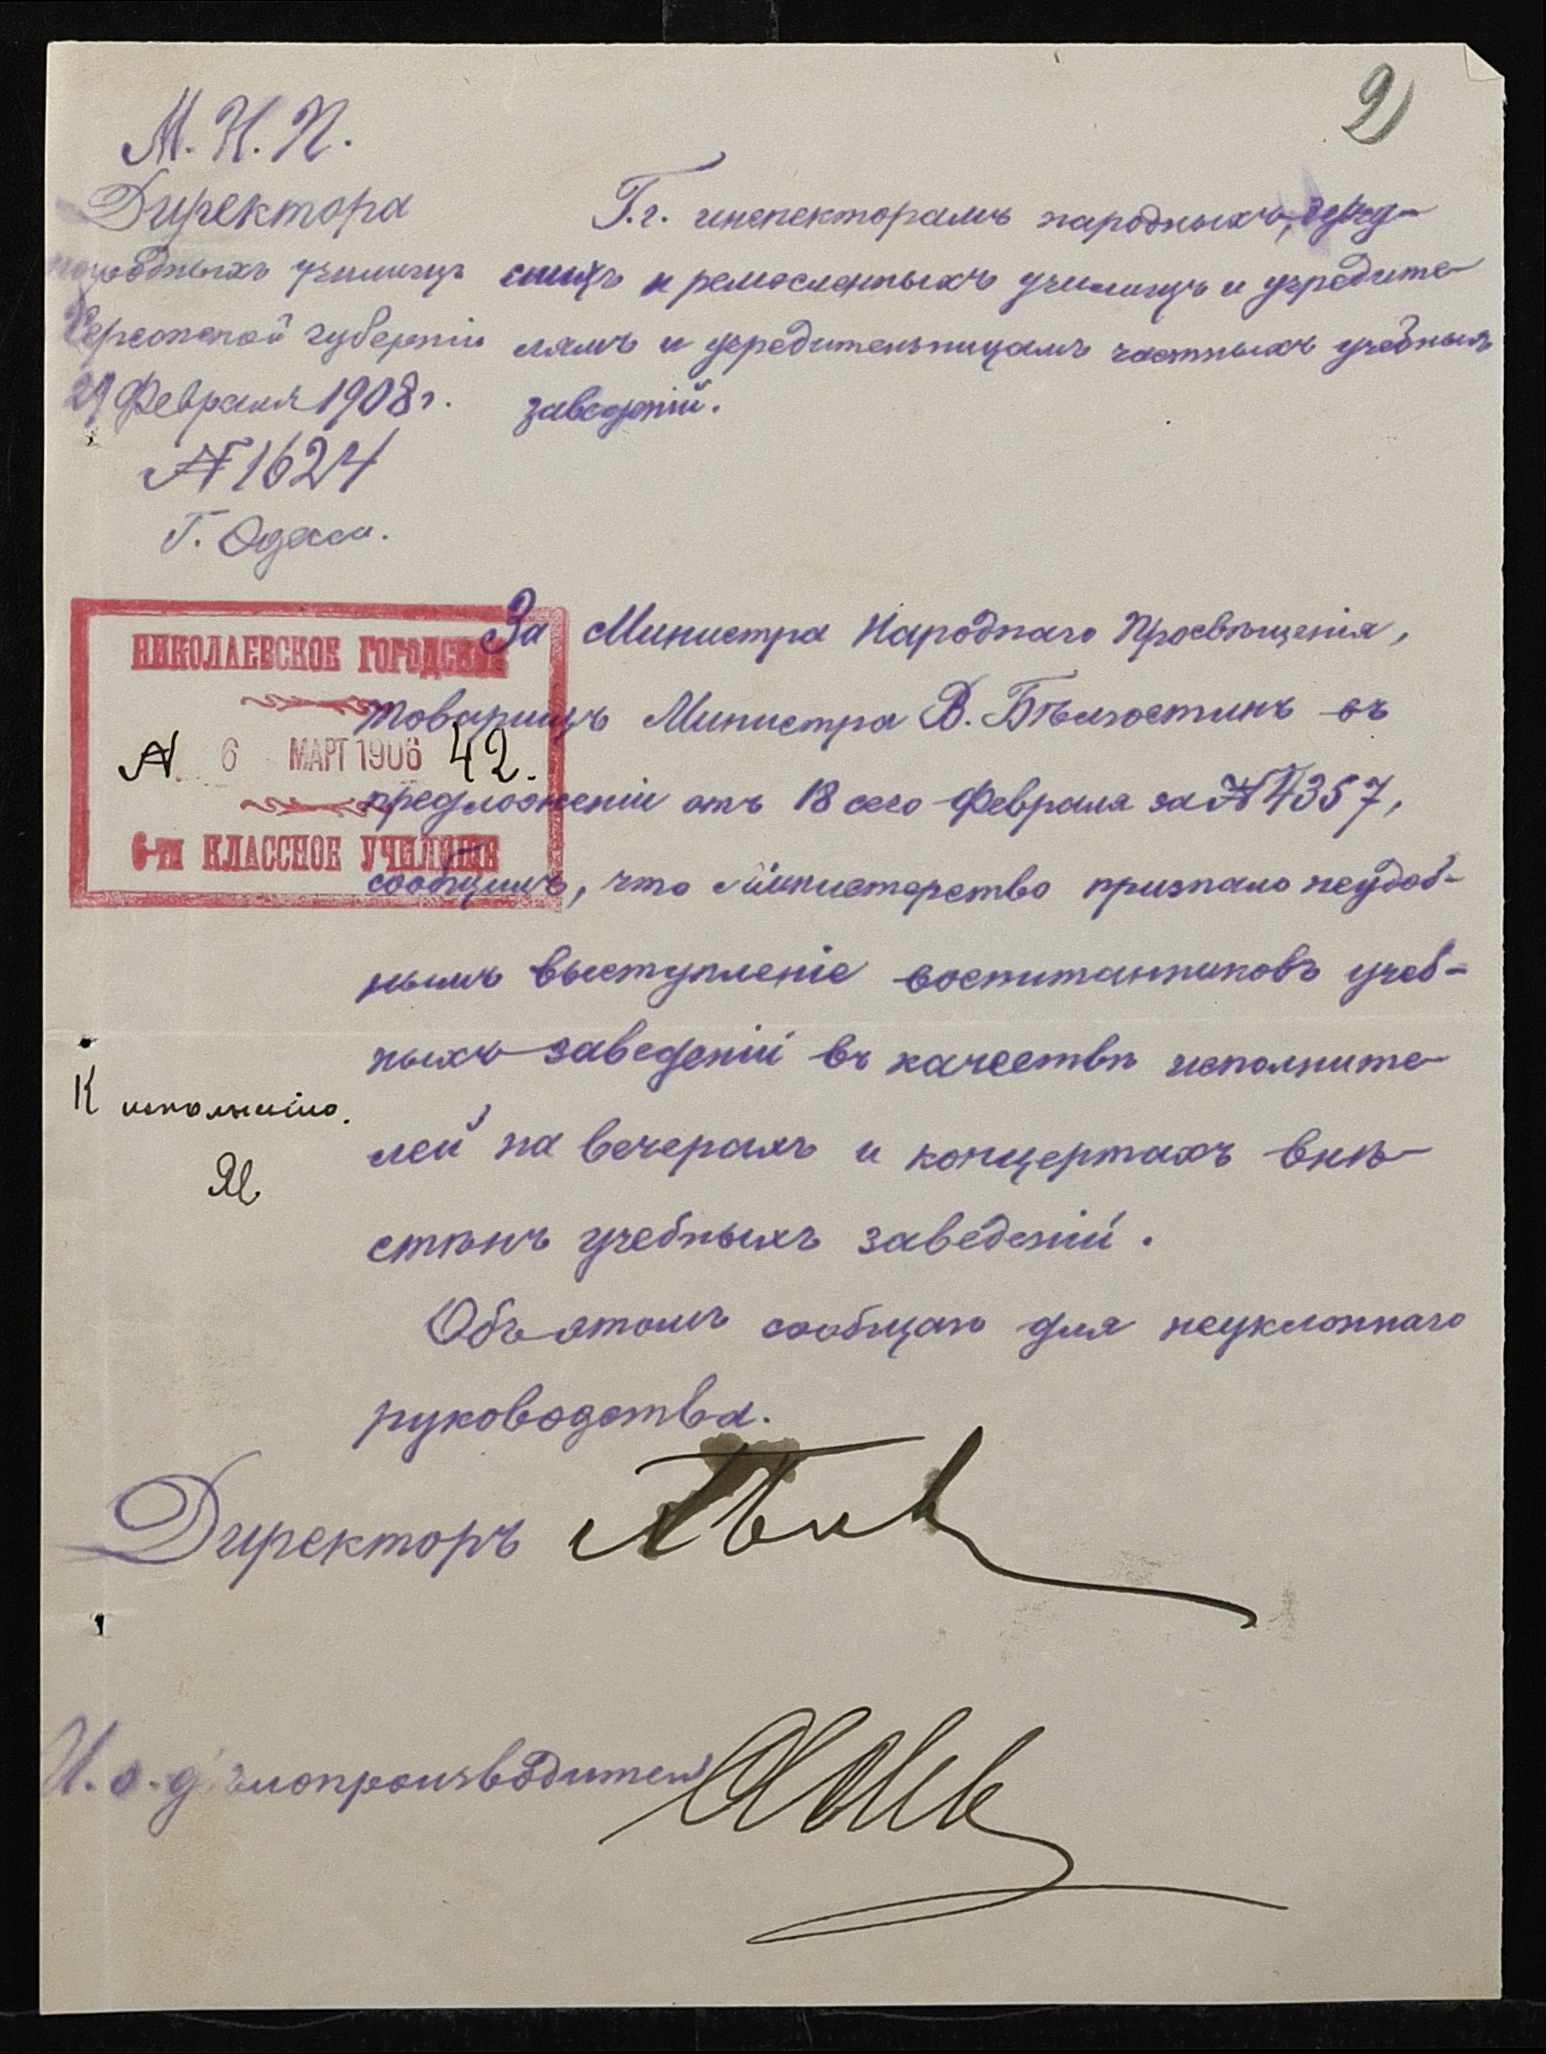 9
М. Н. П.
Директора
народныхъ училищъ
Херсонской губерніи
29 Февраля 1908 г.
№ 1624
Г. Одесса.
Г.г. инспекторамъ народныхъ,
и ремесленныхъ училищъ и учредите-
лямъ и учредительницамъ частныхъ учебныхъ
заведеній.
НИКОЛАЕВСКОЕ ГОРОДСКОЕ
№ 6 МАРТ 1906 42.
6-ти КЛАССНОЕ УЧИЛИЩЕ
За Министра Народнаго Просвѣщенія,
товарищъ Министра В. Бѣлгостинъ въ
предложеніи отъ 18 сего Февраля за № 4357,
сообщилъ, что Министерство признало неудоб-
нымъ выступленіе воспитанниковъ учеб-
ныхъ заведеній въ качествѣ исполните-
лей на вечерахъ и концертахъ внѣ
стѣнъ учебныхъ заведеній.
Объ этомъ сообщаю для неуклоннаго
руководства.
К исполненію.
Директоръ
И. о. дѣлопроизводителя